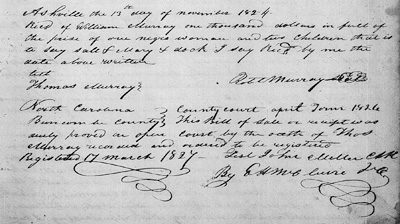 Ashville the 13th day of november 1834
Recd of William Murray one thousand dollars in full of
the prise of one negro woman and two Children that is
to say Sall & Mary & dock I say Recd by me the
date above written
test
Thomas Murray} R Murray
North Carolina } County court april Term 1836
Buncombe County } This Bill of Sale or receipt was
duly proved in open Court by the oath of Thos
Murray recorded and ordered to be registered
Registered 17 march 1837 Test John Miller
By E H McClure